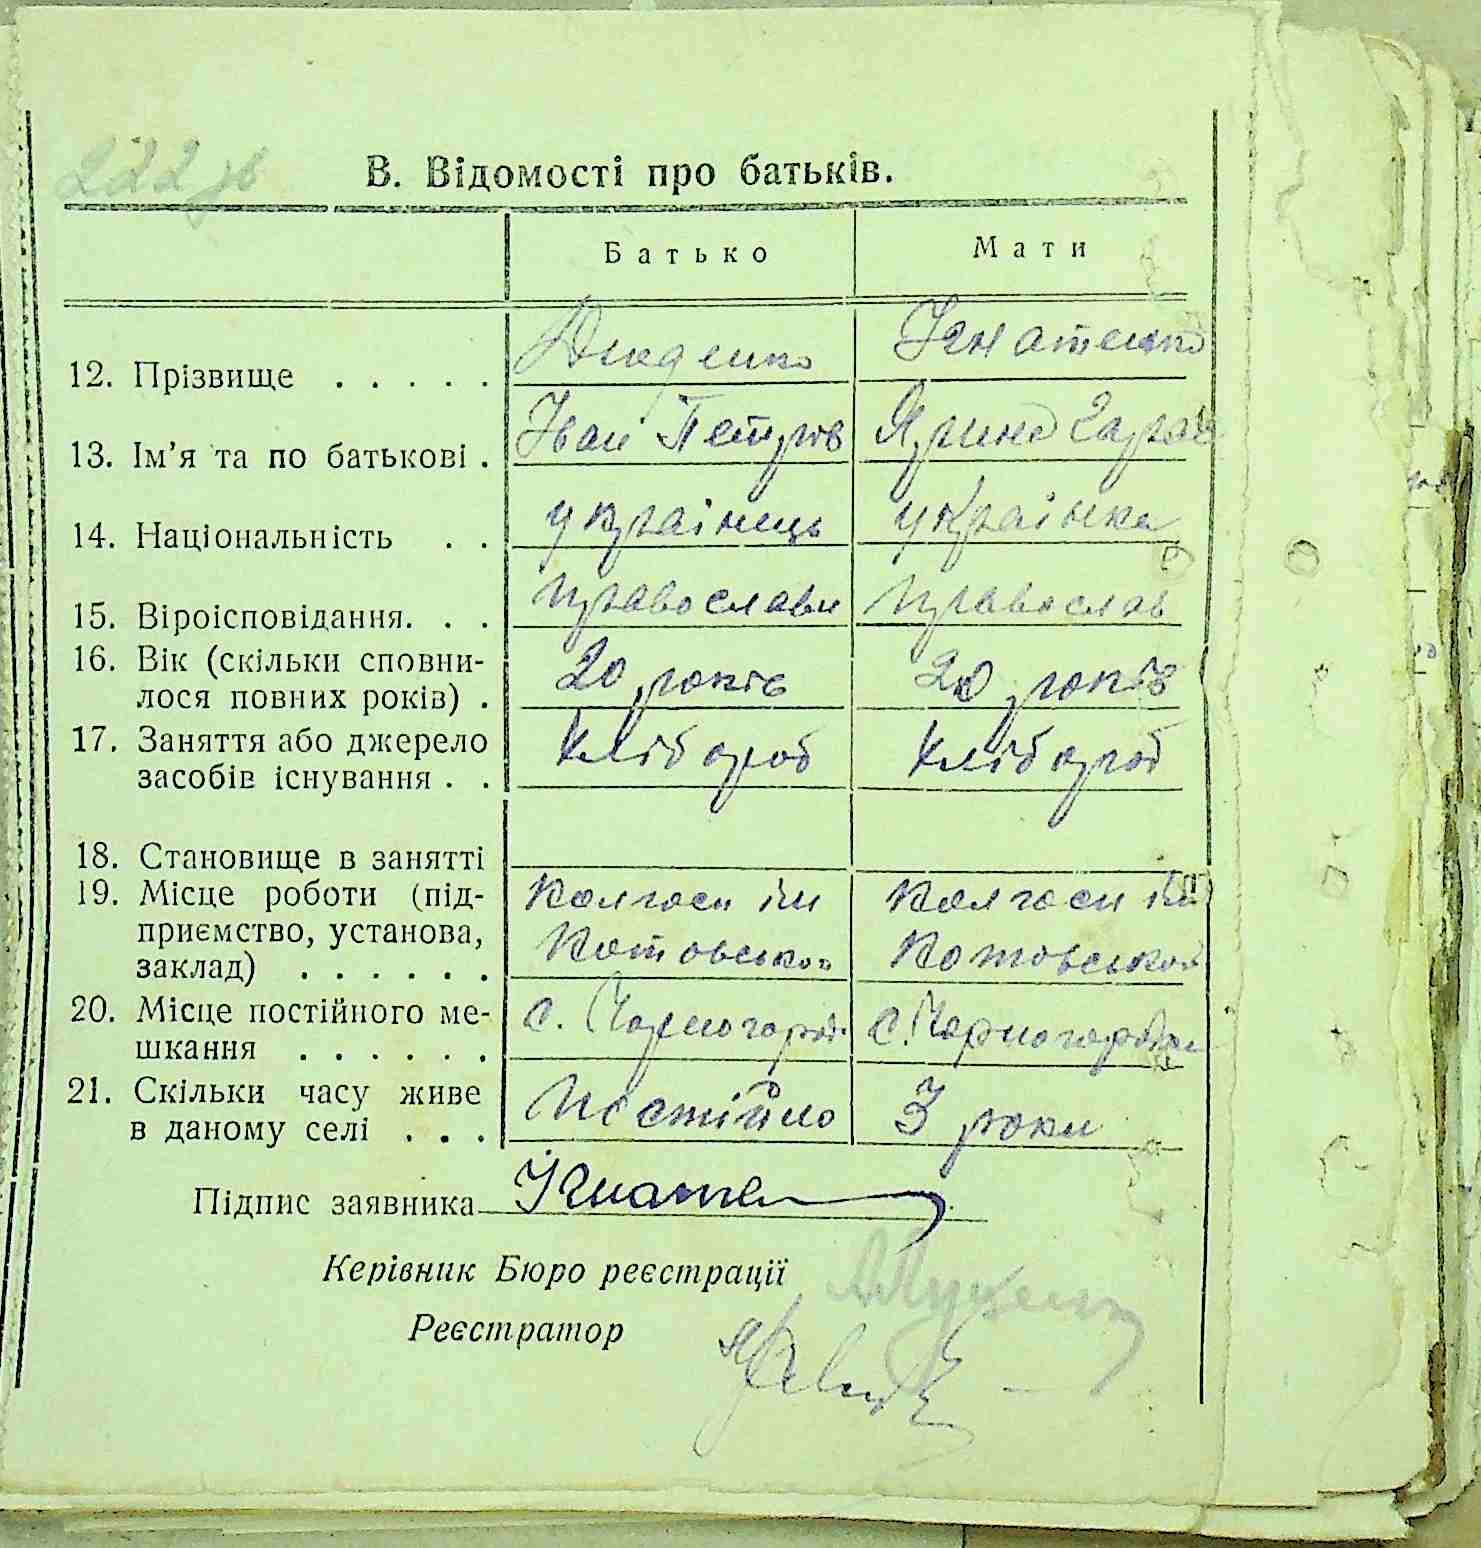 222 зв
В. Відомості про батьків.
Батько Мати
12. Прізвище . . . . . Диденко Ігнатенко
13. Ім'я та по батькові . Іван Петров Ярина
14. Національність . . українець українка
15. Віроісповідання. . . православн православ
16. Вік (скільки сповни-
лося повних років) . 20 років 20 років
17. Заняття або джерело
засобів існування . . Хлібороб Хлібороб
18. Становище в занятті
19. Місце роботи (під- Колгосп ім Колгосп ім
приємство, установа, Котовськог Котовськог
заклад) . . . . . .
20. Місце постійного ме- с. Чорногород с. Чорногородк
шкання . . . . . .
21. Скільки часу живе Постійно 3 роки
в даному селі . . .
Підпис заявника Ігнатен
Керівник Бюро реєстрації
Реєстратор